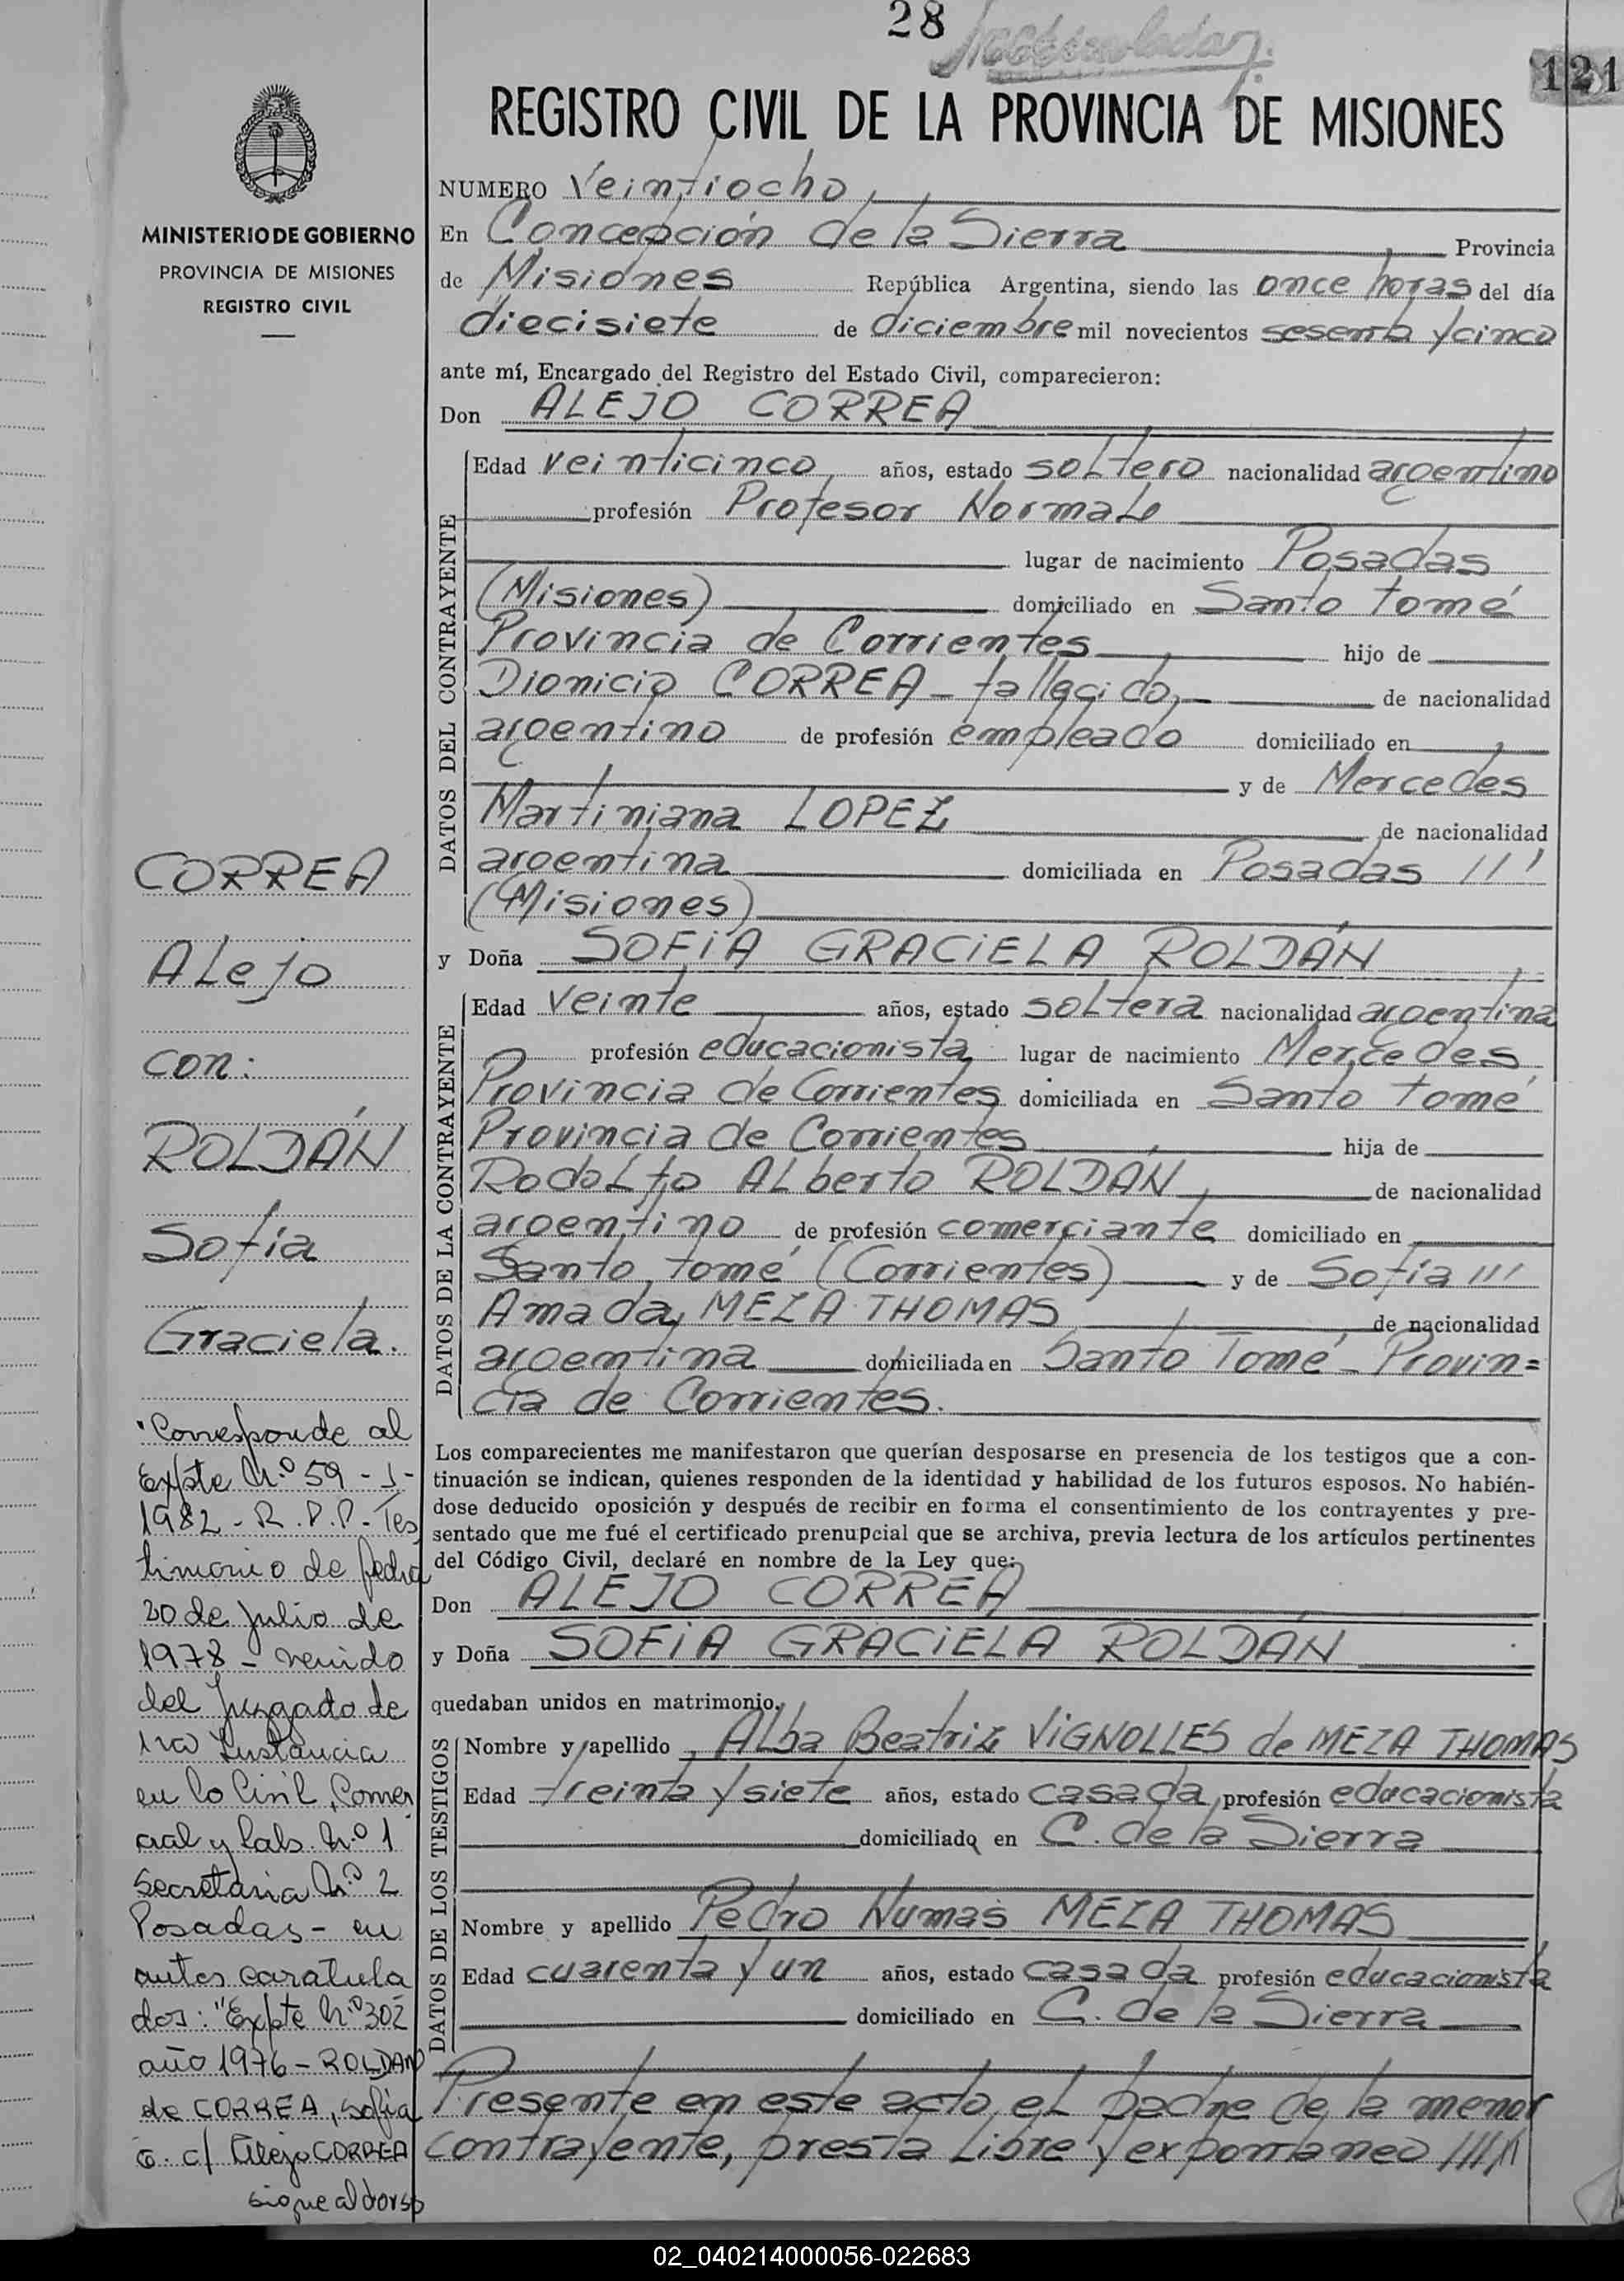 28
121
REGISTRO CIVIL DE LA PROVINCIA DE MISIONES
MINISTERIO DE GOBIERNO
PROVINCIA DE MISIONES
REGISTRO CIVIL
NUMERO Veintiocho
En Concepción de la Sierra Provincia
de Misiones República Argentina, siendo las once horas del día
diecisiete de diciembre mil novecientos sesenta y cinco
ante mí, Encargado del Registro del Estado Civil, comparecieron:
Don ALEJO CORREA
DATOS DEL CONTRAYENTE
Edad veinticinco años, estado soltero nacionalidad argentino
profesión Profesor Normal
lugar de nacimiento Posadas
(Misiones) domiciliado en Santo tomé
Provincia de Corrientes hijo de
Dionicio CORREA - fallecido, de nacionalidad
argentino de profesión empleado domiciliado en
y de Mercedes
Martiniana LOPEZ de nacionalidad
argentina domiciliada en Posadas ///
(Misiones)
y Doña SOFIA GRACIELA ROLDÁN
DATOS DE LA CONTRAYENTE
Edad veinte años, estado soltera nacionalidad argentina
profesión educacionista lugar de nacimiento Mercedes
Provincia de Corrientes domiciliada en Santo tomé
Provincia de Corrientes hija de
Rodolfo Alberto ROLDÁN de nacionalidad
argentino de profesión comerciante domiciliado en
Santo tomé (Corrientes) y de Sofía ///
Amada MEZA THOMAS de nacionalidad
argentina domiciliada en Santo Tomé - Provin=
cia de Corrientes.
Los comparecientes me manifestaron que querían desposarse en presencia de los testigos que a con-
tinuación se indican, quienes responden de la identidad y habilidad de los futuros esposos. No habién-
dose deducido oposición y después de recibir en forma el consentimiento de los contrayentes y pre-
sentado que me fué el certificado prenupcial que se archiva, previa lectura de los artículos pertinentes
del Código Civil, declaré en nombre de la Ley que:
Don ALEJO CORREA
y Doña SOFIA GRACIELA ROLDÁN
quedaban unidos en matrimonio.
DATOS DE LOS TESTIGOS
Nombre y apellido Alba Beatriz VIGNOLLES de MEZA THOMAS
Edad treinta y siete años, estado casada profesión educacionista
domiciliado en C. de la Sierra
Nombre y apellido Pedro Numas MEZA THOMAS
Edad cuarenta y un años, estado casado profesión educacionista
domiciliado en C. de la Sierra
Presente en este acto el padre de la menor
contrayente, presta libre y expontaneo ////
CORREA
Alejo
con:
ROLDÁN
Sofía
Graciela.
"Corresponde al
Expte N.º 59 - J -
1982 - R.P.P. - Tes
timonio de fecha
20 de Julio de
1978 - venido
del Juzgado de
1ra Instancia
en lo Civil, Comer
cial y Lab. N.º 1
Secretaria N.º 2
Posadas - en
autos caratula
dos: "Expte N.º 302
año 1976 - ROLDAN
de CORREA, Sofia
G. c/ Alejo CORREA
sigue al dorso
02_040214000056-022683